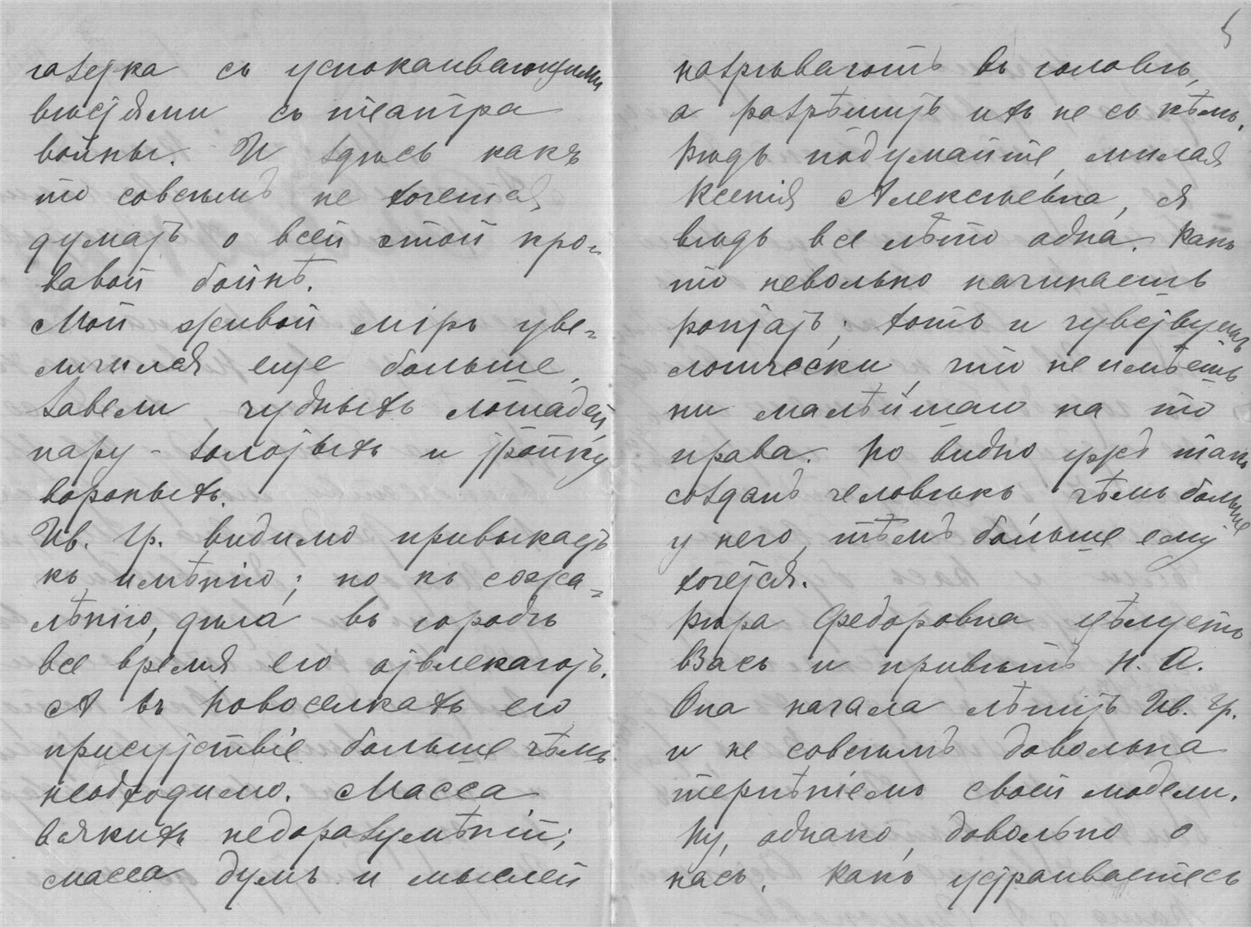 5
газетка съ успокаивающими
вѣстями съ театра
войны. И здѣсь какъ
то совсѣмъ не хочется
думать о всей этой кро-
вавой бойнѣ.
Мой живой міръ уве-
личился еще больше,
завели чудныхъ лошадей
пару - золотыхъ и тройку
вороныхъ.
Ив. Гр. видимо привыкаетъ
къ имѣнію; но къ сожа-
лѣнію, дѣла въ городѣ
все время его отвлекаютъ.
А въ Новоселкахъ его
присутствіе больше чѣмъ
необходимо. Масса
всякихъ недоразумѣній;
масса думъ и мыслей
назрѣваютъ въ головѣ,
а разрѣшить ихъ не съ кѣмъ.
Вѣдь подумайте, милая
Ксенія Алексѣевна, я
вѣдь все лѣто одна. Какъ
то невольно начинаешь
роптать; хоть и чувствуешь
логически, что не имѣешь
ни малѣйшаго на то
права. Но видно ужъ такъ
созданъ человѣкъ чѣмъ больше
у него, тѣмъ больше ему
хочется.
Вѣра Федоровна цѣлуетъ
Васъ и привѣтъ Н. А.
Она начала лѣпить Ив. Гр.
и не совсѣмъ довольна
терпѣніемъ своей модели.
Ну, однако, довольно о
насъ. Какъ устраиваетесь